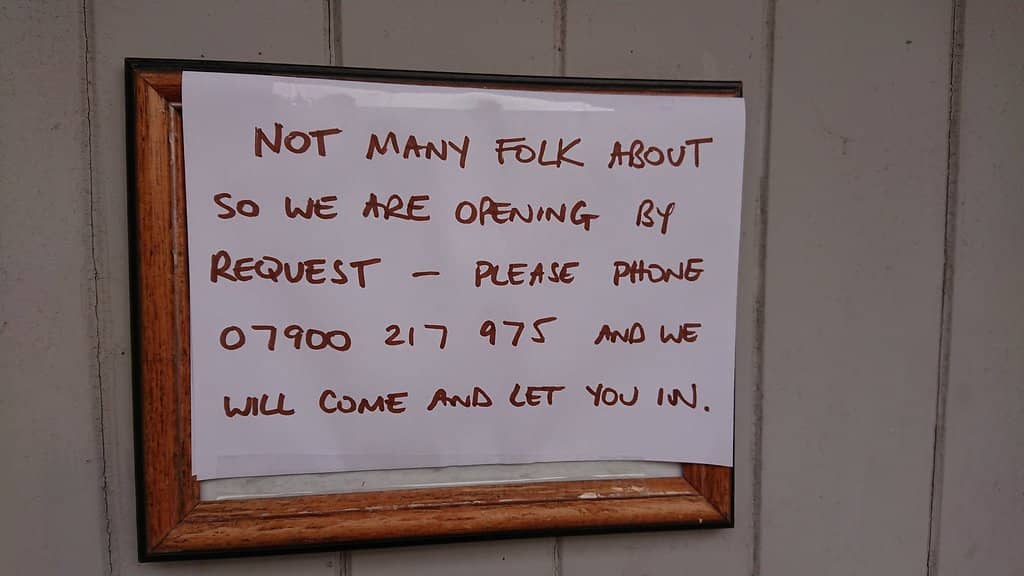 NOT MANY FOLK ABOUT
SO WE ARE OPENING BY
REQUEST - PLEASE PHONE
07900 217 975 AND WE
WILL COME AND LET YOU IN.